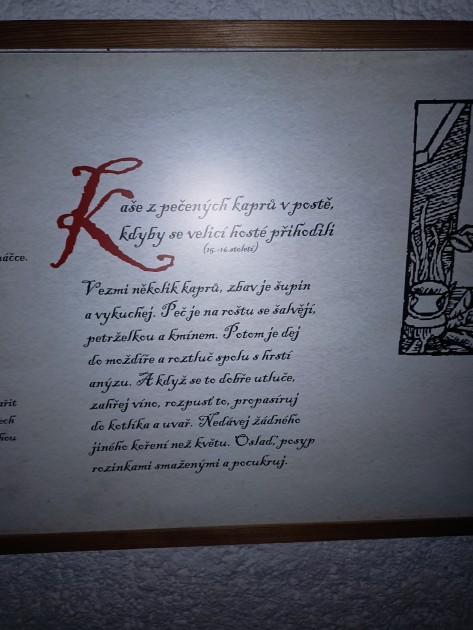 Kaše z pečených kaprů v postě,
kdyby se velicí hosté přihodili
(15.-16.století)
Vezmi několik kaprů, zbav je šupin
a vykuchej. Peč je na roštu se šalvějí,
petrželkou a kmínem. Potom je dej
do moždíře a roztluč spolu s hrstí
anýzu. A když se to dobře utluče,
zahřej víno, rozpusť to, propasíruj
do kotlíka a uvař. Nedávej žádného
jiného koření než květu. Oslaď, posyp
rozinkami smaženými a pocukruj.